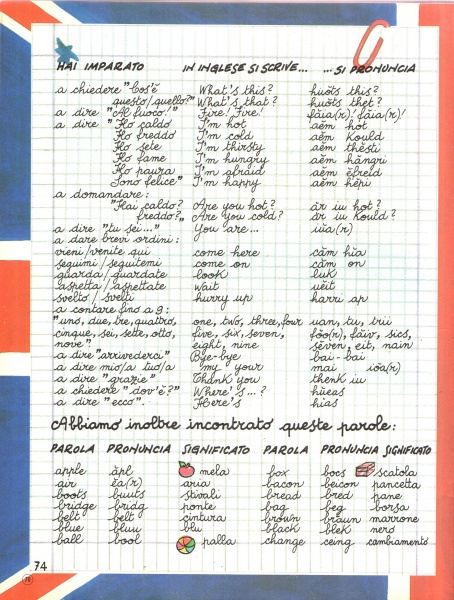 HAI IMPARATO IN INGLESE SI SCRIVE... ...SI PRONUNCIA
a chiedere "Cos'è What's this? huòts this?
questo/quello?" What's that? huòts thet?
a dire "Al fuoco!" Fire! Fire! fàia(r)! fàia(r)!
a dire "Ho caldo I'm hot aèm hot
Ho freddo I'm cold aèm kould
Ho sete I'm thirsty aèm thèsti
Ho fame I'm hungry aèm hàngri
Ho paura I'm afraid aèm efreid
Sono felice" I'm happy aèm hèpi
a domandare:
"Hai caldo? Are you hot? àr iu hot?
freddo?" Are you cold? àr iu kould?
a dire "tu sei..." You are... iùa(r)
a dare brevi ordini:
vieni/venite qui come here càm hìa
seguimi/seguitemi come on càm on
guarda/guardate look luk
aspetta/aspettate wait uèit
svelto/svelti hurry up harri ap
a contare fino a 9:
"uno, due, tre, quattro, one, two, three, four uan, tu, trii
cinque, sei, sette, otto, five, six, seven, foo(r), fàiv, sics,
nove". eight, nine sèven, eit, nain
a dire "arrivederci" Bye-bye bai-bai
a dire mio/a tuo/a my your mai ioa(r)
a dire "grazie" Thank you thenk iu
a chiedere "dov'è?" Where's...? hùeas
a dire "ecco". Here's hìas
Abbiamo inoltre incontrato queste parole:
PAROLA PRONUNCIA SIGNIFICATO PAROLA PRONUNCIA SIGNIFICATO
apple àpl mela fox bocs scatola
air èa(r) aria bacon beicon pancetta
boots buuts stivali bread bred pane
bridge bridg ponte bag beg borsa
belt belt cintura brown bràun marrone
blue bluu blu black blek nero
ball bool palla change ceing cambiamento
74